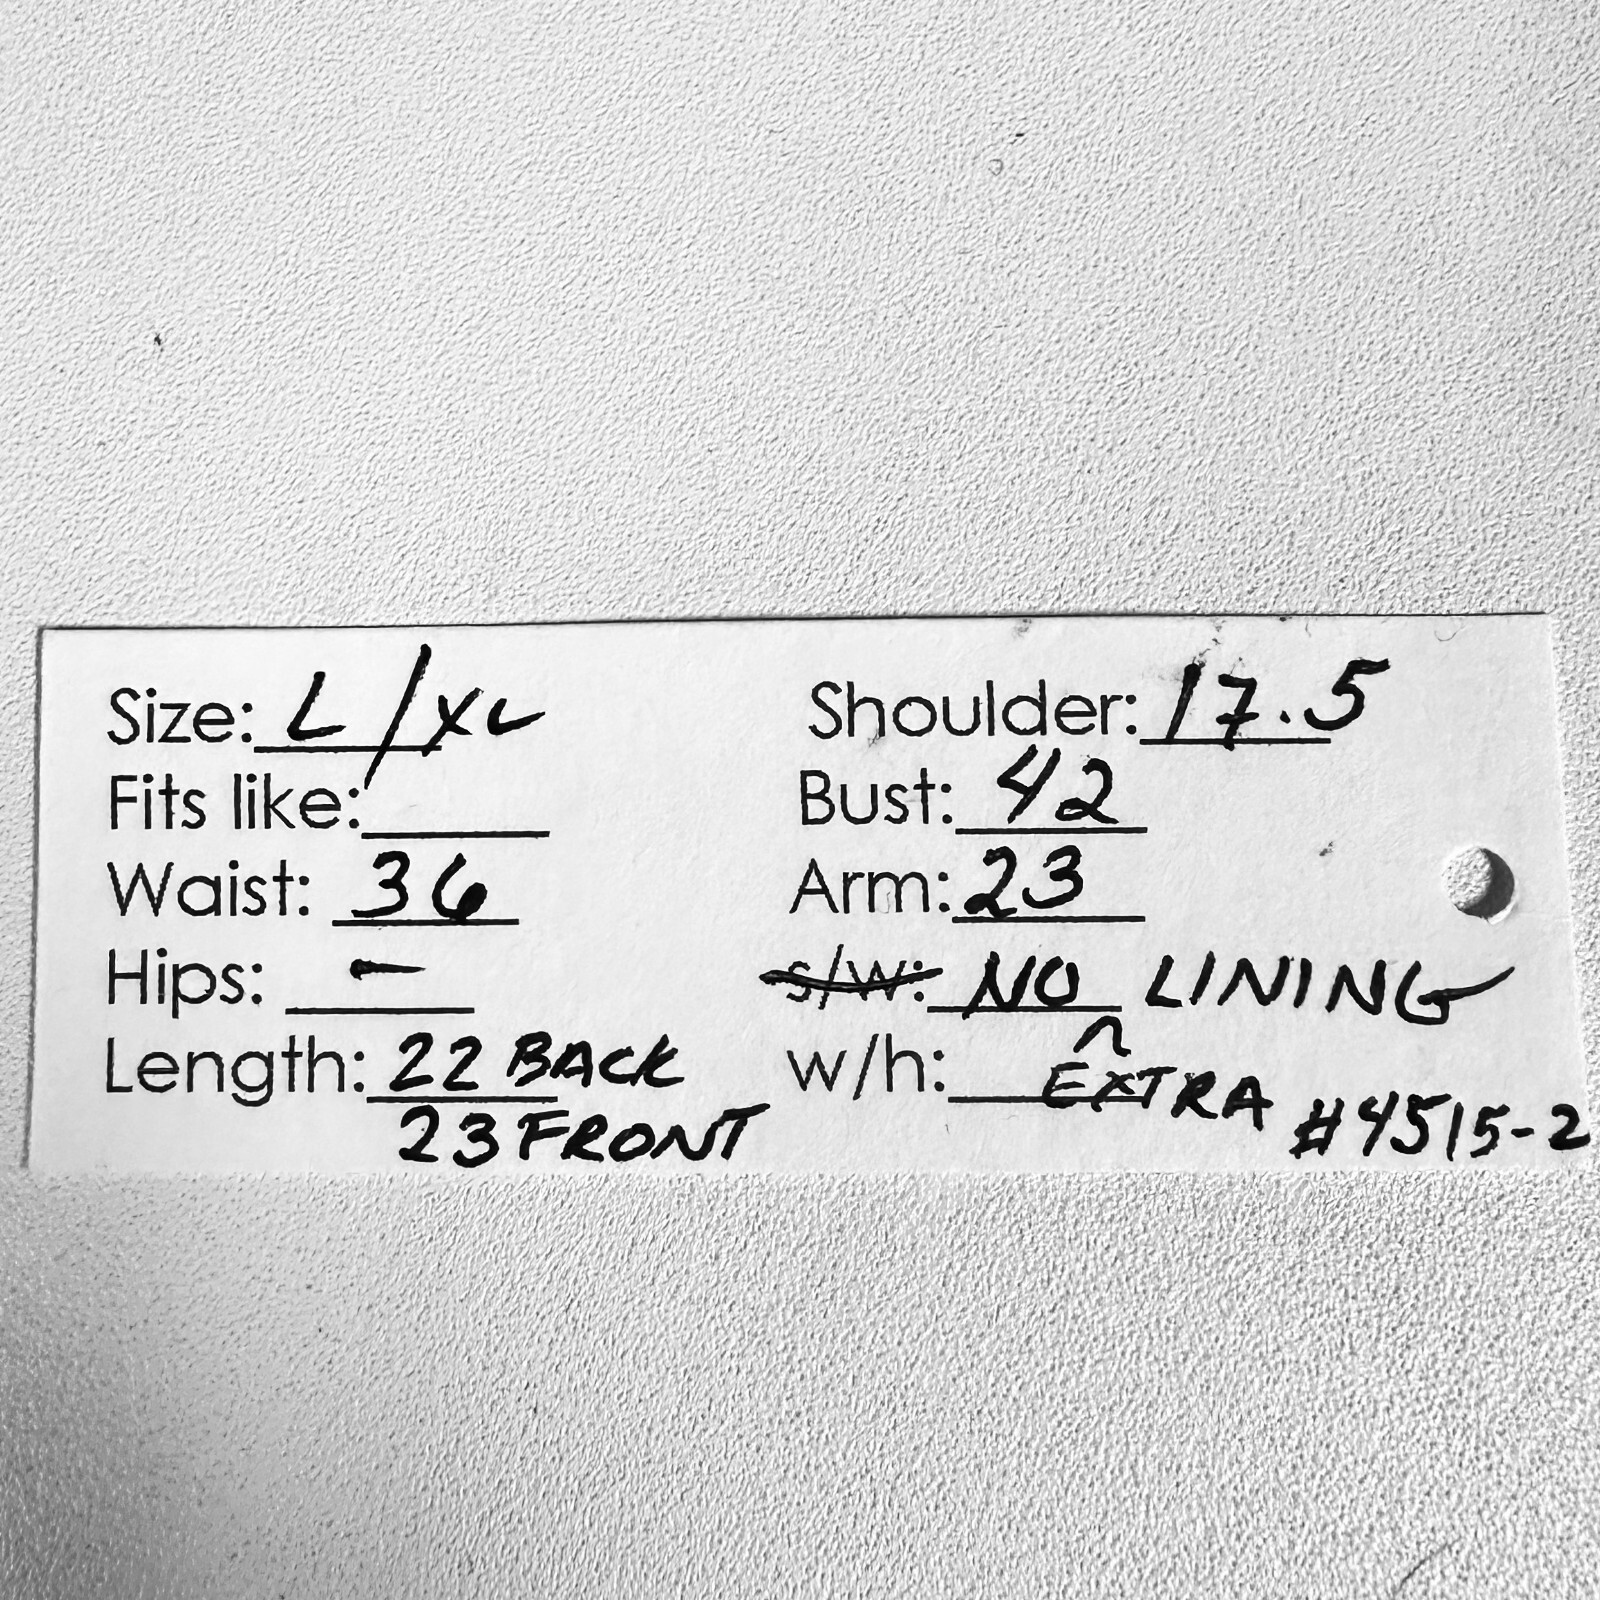 Size: L/XL
Fits like:
Waist: 36
Hips: -
Length: 22 BACK
23 FRONT
Shoulder: 17.5
Bust: 42
Arm: 23
s/w: NO LINING
w/h: ^ EXTRA
#4515-2